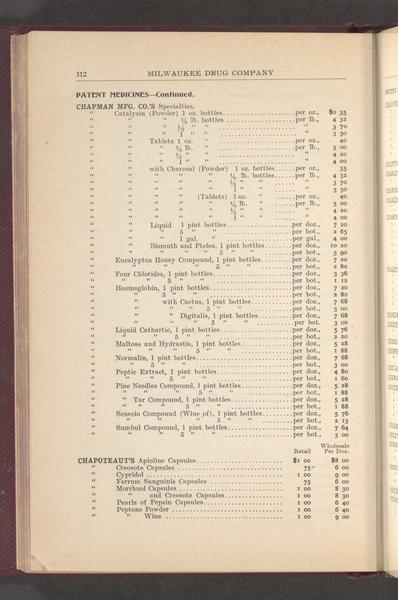 312 MILWAUKEE DRUG COMPANY
PATENT MEDICINES—Continued.
CHAPMAN MFG. CO.'S Specialties.
" Catalysin (Powder) 1 oz. bottles per oz., $0 35
" " " ¼ lb. bottles per lb., 4 32
" " " ½ " " " 3 70
" " " 1 " " " 3 50
" Tablets 1 oz. " per oz., 40
" " ¼ lb. " per lb., 5 00
" " ½ " " " 4 20
" " 1 " " " 4 00
" with Charcoal (Powder) 1 oz. bottles per oz., 35
" " " " ¼ lb. bottles per lb., 4 32
" " " " ½ " " " 3 70
" " " " 1 " " " 3 50
" " " (Tablets) 1 oz. " per oz., 40
" " " " ¼ lb. " per lb., 5 00
" " " " ½ " " " 4 20
" " " " 1 " " " 4 00
" Liquid 1 pint bottles per doz., 7 20
" " 5 " " per bot., 2 65
" " 1 gal. " per gal., 4 00
" Bismuth and Ptelea, 1 pint bottles per doz., 10 20
" " " " 5 " " per bot., 3 90
" Eucalyptus Honey Compound, 1 pint bottles per doz., 7 20
" " " " 5 " " per bot., 2 80
" Four Chlorides, 1 pint bottles per doz., 3 36
" " " 5 " " per bot., 1 12
" Haemoglobin, 1 pint bottles per doz., 7 20
" " 5 " " per bot., 2 80
" " with Cactus, 1 pint bottles per doz., 7 68
" " " " 5 " " per bot., 3 00
" " " Digitalis, 1 pint bottles per doz., 7 68
" " " " 5 " " per bot. 3 00
" Liquid Cathartic, 1 pint bottles per doz., 5 76
" " " 5 " " per bot., 2 20
" Maltose and Hydrastis, 1 pint bottles per doz., 5 28
" " " " 5 " " per bot., 1 88
" Normalin, 1 pint bottles per doz., 7 68
" " 5 " " per bot., 3 00
" Peptic Extract, 1 pint bottles per doz., 4 80
" " " 5 " " per bot., 1 60
" Pine Needles Compound, 1 pint bottles per doz., 5 28
" " " " 5 " " per bot., 1 88
" " Tar Compound, 1 pint bottles per doz., 5 28
" " " " 5 " " per bot., 1 88
" Senecio Compound (Wine of), 1 pint bottles per doz., 5 76
" " " " 5 " " per bot., 2 13
" Sumbul Compound, 1 pint bottles per doz., 7 64
" " " 5 " " per bot., 3 00
Retail Wholesale Per Doz.
CHAPOTEAUT'S Apioline Capsules $1 00 $8 00
" Creosote Capsules 75 6 00
" Cypridol 1 00 9 00
" Ferrum Sanguinis Capsules 75 6 00
" Morrhuol Capsules 1 00 8 30
" " and Creosote Capsules 1 00 8 30
" Pearls of Pepsin Capsules 1 00 6 40
" Peptone Powder 1 00 6 40
" " Wine 1 00 9 00